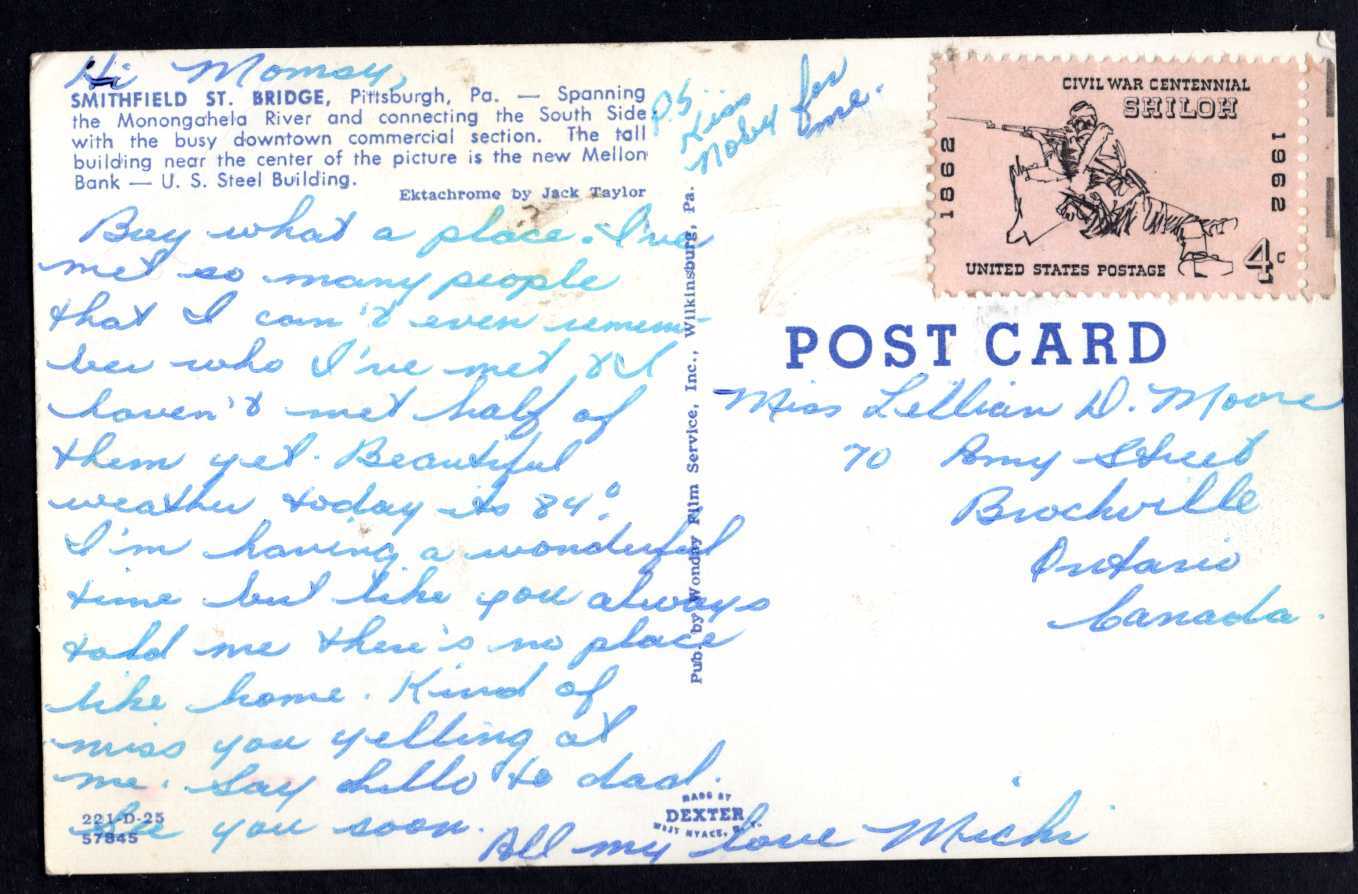 Hi Momsy,
SMITHFIELD ST. BRIDGE, Pittsburgh, Pa. — Spanning
the Monongahela River and connecting the South Side
with the busy downtown commercial section. The tall
building near the center of the picture is the new Mellon
Bank — U. S. Steel Building.
Ektachrome by Jack Taylor
Boy what a place. I've
met so many people
that I can't even remem-
ber who I've met & I
haven't met half of
them yet. Beautiful
weather today its 84°.
I'm having a wonderful
time but like you always
told me there's no place
like home. Kind of
miss you yelling at
me. Say hello to dad.
See you soon.
All my love Michi
221-D-25
57845
PS
Kiss
for
me.
Pub. by Wonday Film Service, Inc., Wilkinsburg, Pa.
MADE BY
DEXTER
WEST NYACK, N.Y.
CIVIL WAR CENTENNIAL
SHILOH
1862
1962
UNITED STATES POSTAGE
4c
POST CARD
Miss Lillian D. Moore
70 Amy Street
Brockville
Ontario
Canada.